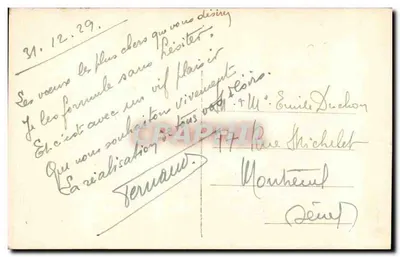 31.12.29.
Les vœux les plus chers que vous désirez
Je les formule sans hésiter.
Et c'est avec un vif plaisir
Que nous souhaitons vivement
La réalisation de tous vos désirs.
Fernand.
M. & Me Emile Duchon
77 Rue Michelet
Montreuil
Seine